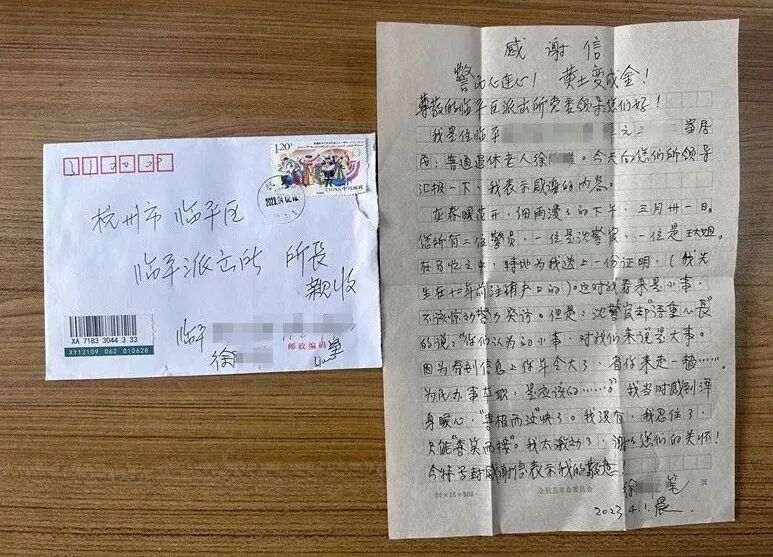 120
中国邮政 CHINA
2023.04.02
杭州市 临平区
临平派出所 所长
亲收
临平
徐
邮政编码
XA 7183 3044 3 33
XY12109 062 010628
感谢信
警民心连心! 黄土变成金!
尊敬的临平区派出所党委领导您们好!
我是住临平 居
民:普通退休老人徐 。今天向您们所领导
汇报一下,我表示感谢的内容。
在春暖花开,细雨濛濛的下午,三月卅一日。
您所有二位警员,一位是沈警官,一位是 姐
在百忙之中,特地为我送上一份证明,(我先
生在十二年前注销户口的)。这对我看来是小事,
不该惊动警力来访。但是:沈警官却“语重心长”
的说:“你们认为的小事,对我们来说是大事。
因为看到信息上你年令大了,省你来走一趟……
为民办事 ,是应该的……。”我当时感到浑
身暖心,“喜极而泣”快了。我没有,我忍住了,
只能“喜笑而接”。我太激动了,谢谢您们的关怀!
今特写封感谢信表示我的敬意
徐 笔
2023.4.1.晨.
20×15=300
余杭县革命委员会
页